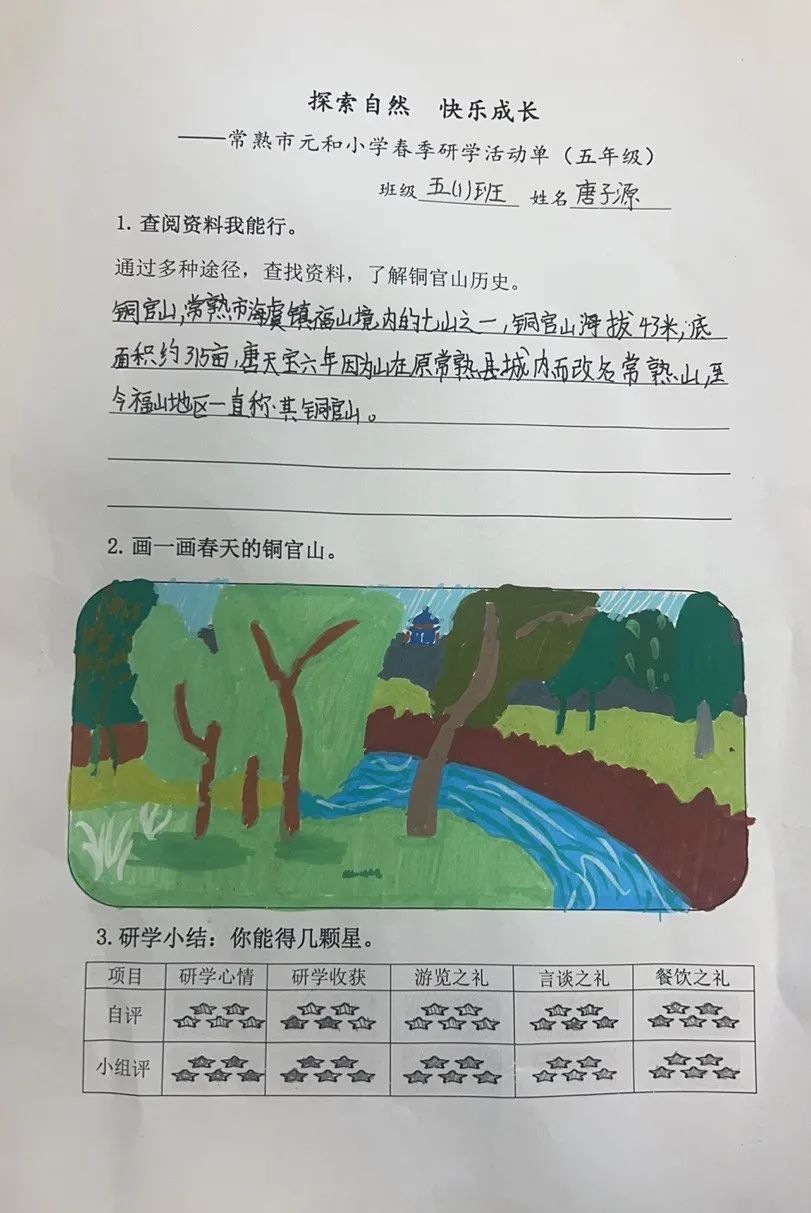 探索自然 快乐成长
——常熟市元和小学春季研学活动单（五年级）
班级 五(1)班 姓名 唐子源
1. 查阅资料我能行。
通过多种途径，查找资料，了解铜官山历史。
铜官山,常熟市海虞镇福山境内的七山之一,铜官山海拔43米,底
面积约315亩,唐天宝六年因为山在原常熟县城内而改名常熟山,至
今福山地区一直称其铜官山。
2. 画一画春天的铜官山。
3. 研学小结：你能得几颗星。
项目 研学心情 研学收获 游览之礼 言谈之礼 餐饮之礼
自评
小组评